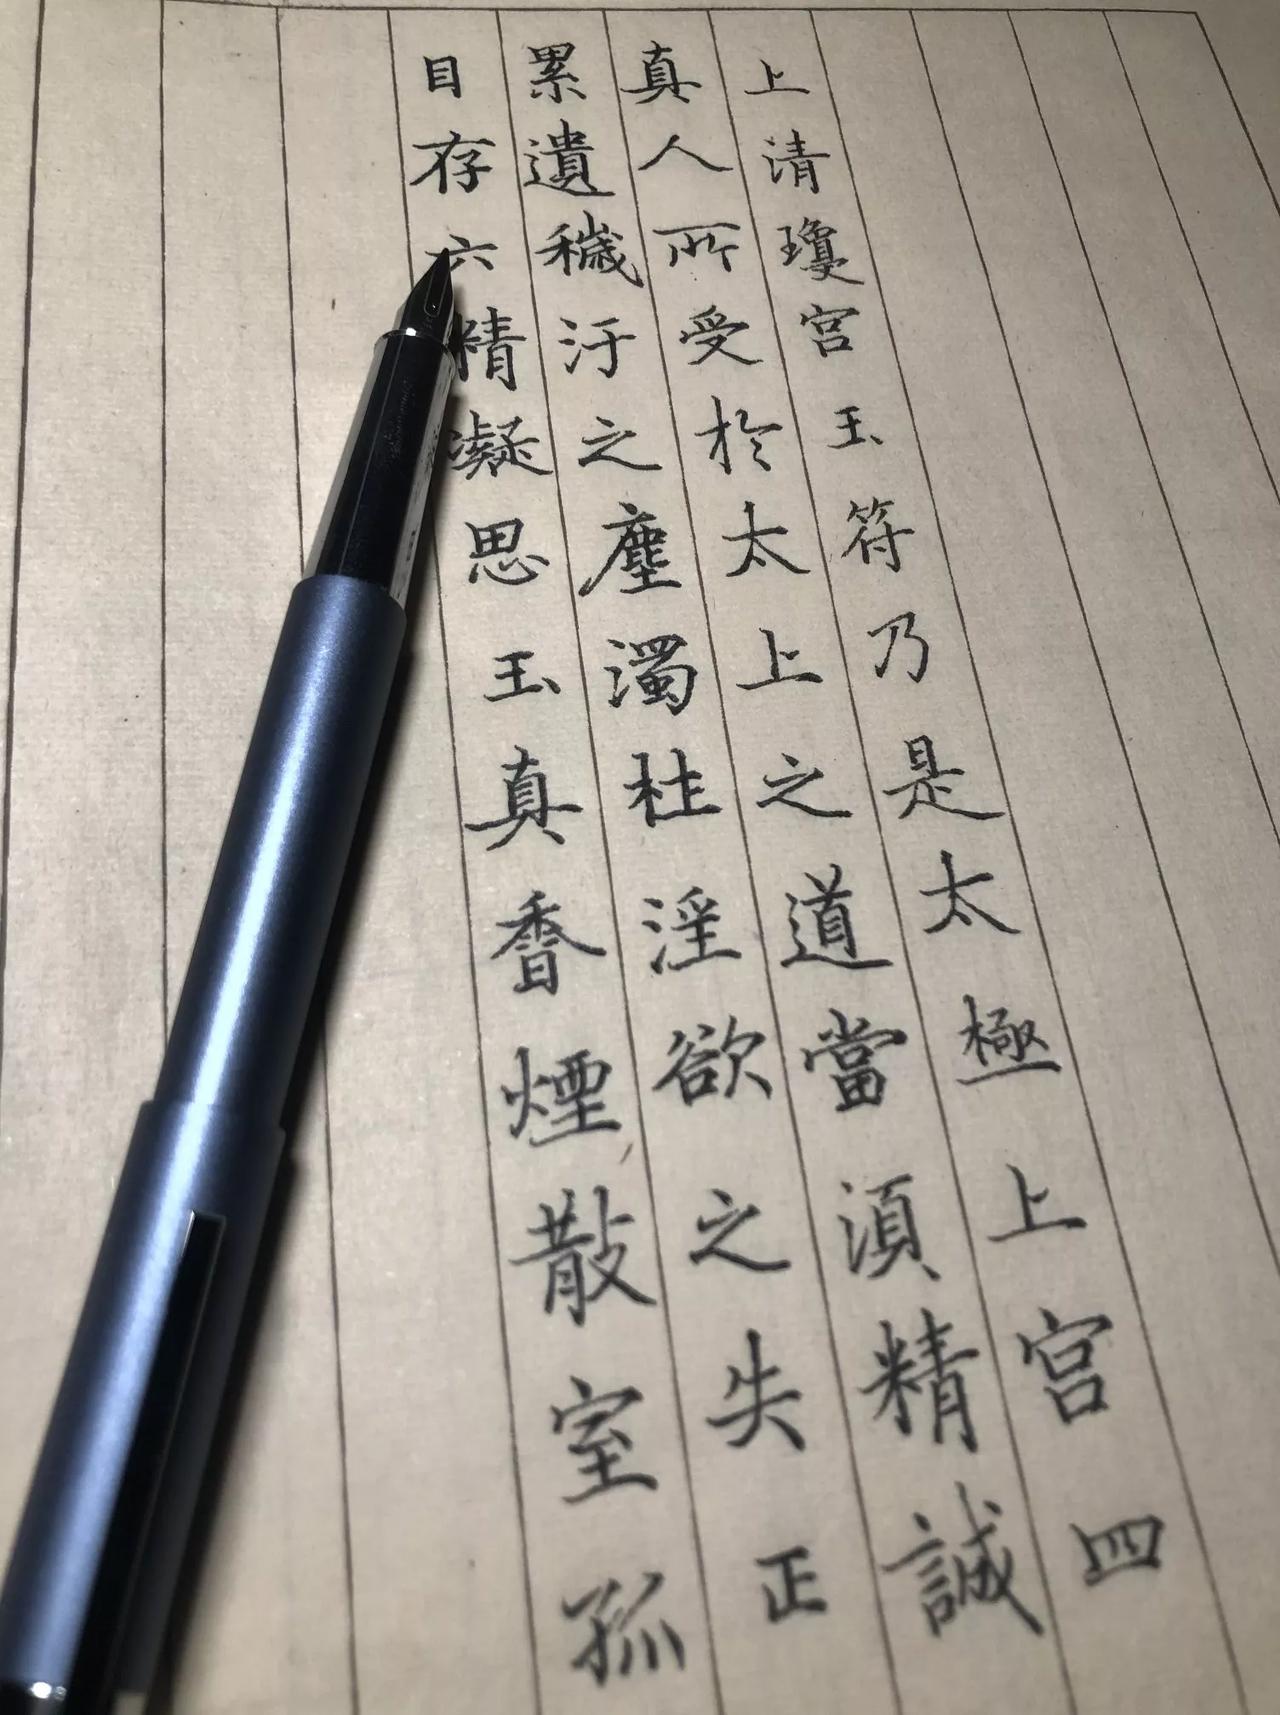 上清瓊宮玉符乃是太極上宮四
真人所受於太上之道當須精誠
累遺穢汙之塵濁杜淫欲之失正
目存六精凝思玉真香煙散室孤